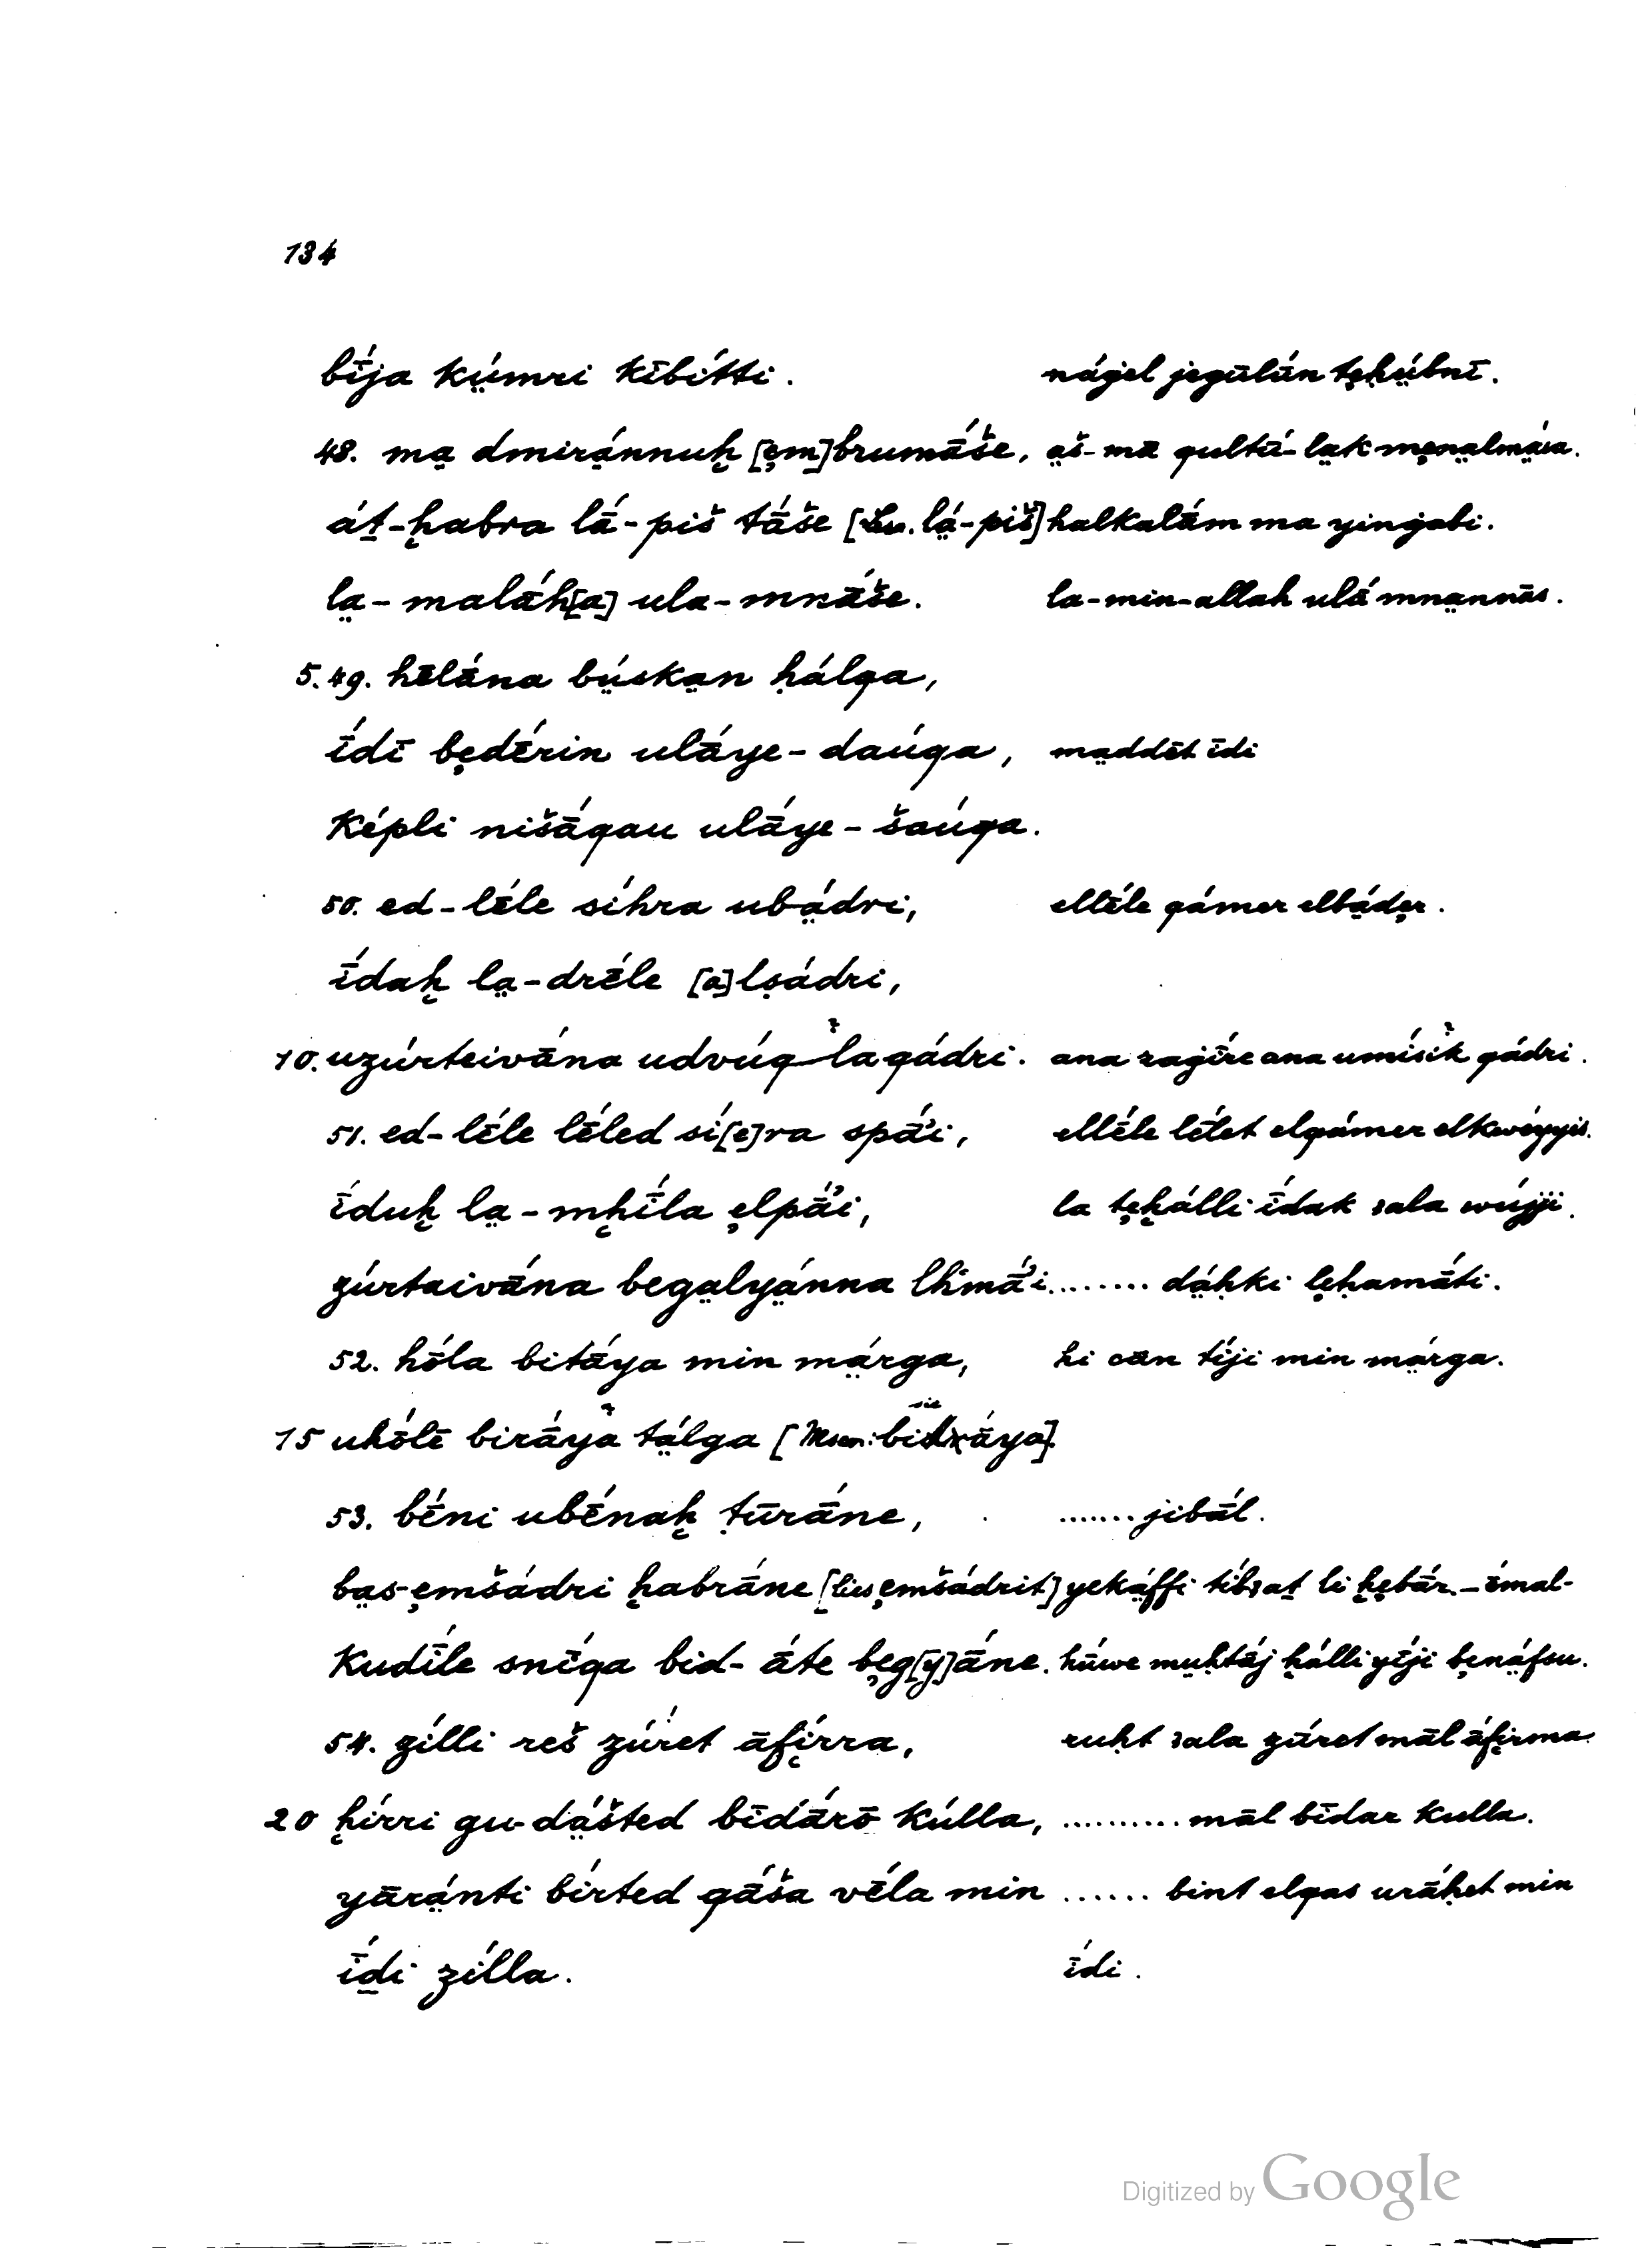 134
bī́ja kṳ́mri kībítti. nágel jegūlún tẹḥṳ́bnī.
48. ma̤ dmirá̤nnuḫ [ẹm]brumā́še, a̤š-mā qultū́-la̤k mẹna̤lmā̤sa.
áṯ-ḫabra lā́-piš tā́še [lies. lā̤́-piš] halkalā́m ma yinġabi.
la̤-malā́h[a̤] ula-mnā́še. la-min-allah ulā́ mna̤nnās.
5. 49. hēlā́na bṳ́ska̤n ḥálqa,
ī́dī bẹdḗrin ulā́ye-daúqa, ma̤ddēt īdi
képli nišā́qau ulā́ye-šaúqa.
50. ed-lḗle síhra ubá̤dri, ellḗle qámer elbá̤dẹr.
ī́daḫ la̤-drḗle [a]lṣádri,
10. uzúrteivā́na udvúq la qádri. ana zaġī́re ana umísik qádri.
51. ed-lḗle lḗled sí[e]ra spā́ʾi, ellḗle lḗlet elqámer elkwéyyis.
ī́duḫ la̤-mḫī́la ẹlpā́ʾi, la tẹḫálli ī́dak ʿala wújji.
zúrtaivā́na bega̤lyá̤nna lhimā́ʾi. ....... dá̤ḥki lẹḥamā́ti.
52. hṓla bitā́ya min má̤rga, hi cān tī́ji min má̤rga.
15 uhṓlē birā́ya tá̤lga [Mscr.: sic bidrā́ya].
53. bḗni ubḗnaḫ ṭūrā́ne, ....... jibā́l.
ba̤s-ẹmšádri ḫabrā́ne [lies ẹmšádriṯ] yeká̤ffi tíbʿaṯ li ḫẹbā́r. – ēmal-
kudī́le snī́qa bid-ā́te bẹg[y]ā́ne. hā́we mṳḥtāj ḫálli yī́ji bẹná̤fsu.
54. zílli reš zū́ret āfị́rra, ruḥt ʿala zū́ret māl āfị́rma
20 ḫírri gu-dá̤šted bīdā́rō kúlla, .......... māl bīdar kulla.
yārá̤nti bírted qā́ša vḗla min ...... bint elqas urā́ḥet min
ī́ḏi zílla. ī́di.
Digitized by Google